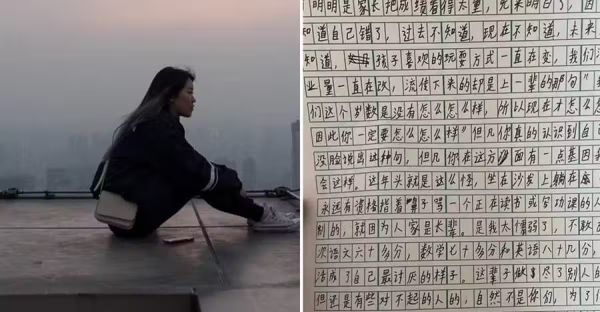 明明是家长把成绩看得太重，先来明白了，因
知道自己错了，过去不知道，现在不知道，未来
知道，孩子喜欢的玩耍方式一直在变，我们
业量一直在改，流传下来的却是上一辈的那句"
们这个岁数是没有怎么怎么样，所以现在才怎么怎
因此你一定要怎么怎么样"但凡你真的认识到自
没脸说出这种句，但凡你在这方面有一点基因我
会这样。这年头就是这么怪，坐在沙发上躺在
永远有资格指着鼻子骂一个正在读书或句功课的人
别的，就因为人家是长辈。是我太懦弱了，不敢
次语文六十多分，数学七十多分和英语八十几分，
活成了自己最讨厌的样子。这辈子做尽了别人的
但还是有些对不起的人的，自然不是你们，为了